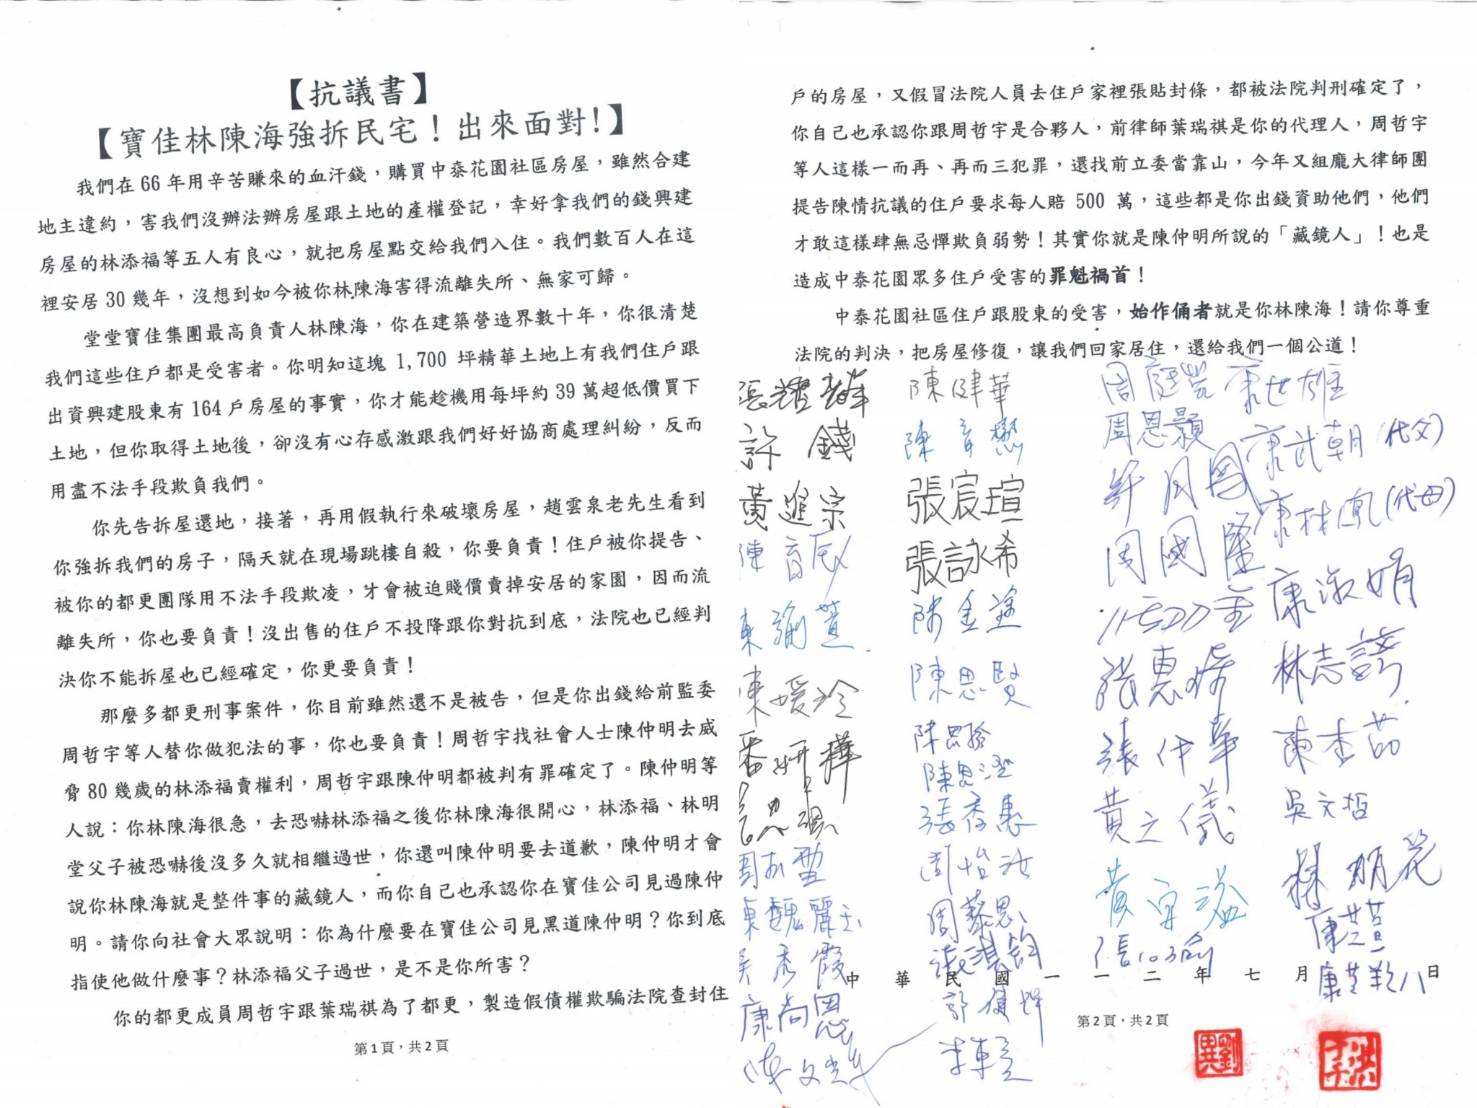 【抗議書】
【寶佳林陳海強拆民宅！出來面對!】
我們在 66 年用辛苦賺來的血汗錢，購買中泰花園社區房屋，雖然合建
地主違約，害我們沒辦法辦房屋跟土地的產權登記，幸好拿我們的錢興建
房屋的林添福等五人有良心，就把房屋點交給我們入住。我們數百人在這
裡安居 30 幾年，沒想到如今被你林陳海害得流離失所、無家可歸。
堂堂寶佳集團最高負責人林陳海，你在建築營造界數十年，你很清楚
我們這些住戶都是受害者。你明知這塊 1,700 坪精華土地上有我們住戶跟
出資興建股東有 164 戶房屋的事實，你才能趁機用每坪約 39 萬超低價買下
土地，但你取得土地後，卻沒有心存感激跟我們好好協商處理糾紛，反而
用盡不法手段欺負我們。
你先告拆屋還地，接著，再用假執行來破壞房屋，趙雲泉老先生看到
你強拆我們的房子，隔天就在現場跳樓自殺，你要負責！住戶被你提告、
被你的都更團隊用不法手段欺凌，才會被迫賤價賣掉安居的家園，因而流
離失所，你也要負責！沒出售的住戶不投降跟你對抗到底，法院也已經判
決你不能拆屋也已經確定，你更要負責！
那麼多都更刑事案件，你目前雖然還不是被告，但是你出錢給前監委
周哲宇等人替你做犯法的事，你也要負責！周哲宇找社會人士陳仲明去威
脅 80 幾歲的林添福賣權利，周哲宇跟陳仲明都被判有罪確定了。陳仲明等
人說：你林陳海很急，去恐嚇林添福之後你林陳海很開心，林添福、林明
堂父子被恐嚇後沒多久就相繼過世，你還叫陳仲明要去道歉，陳仲明才會
說你林陳海就是整件事的藏鏡人，而你自己也承認你在寶佳公司見過陳仲
明。請你向社會大眾說明：你為什麼要在寶佳公司見黑道陳仲明？你到底
指使他做什麼事？林添福父子過世，是不是你所害？
你的都更成員周哲宇跟葉瑞祺為了都更，製造假債權欺騙法院查封住
第1頁，共2頁
戶的房屋，又假冒法院人員去住戶家裡張貼封條，都被法院判刑確定了，
你自己也承認你跟周哲宇是合夥人，前律師葉瑞祺是你的代理人，周哲宇
等人這樣一而再、再而三犯罪，還找前立委當靠山，今年又組龐大律師團
提告陳情抗議的住戶要求每人賠 500 萬，這些都是你出錢資助他們，他們
才敢這樣肆無忌憚欺負弱勢！其實你就是陳仲明所說的「藏鏡人」！也是
造成中泰花園眾多住戶受害的罪魁禍首！
中泰花園社區住戶跟股東的受害，始作俑者就是你林陳海！請你尊重
法院的判決，把房屋修復，讓我們回家居住，還給我們一個公道！
陳健華
周庭
康世雄
許錢
周恩顥
康武朝(代父)
黃進宗
張宸瑄
康林 (代母)
張詠希
周國
陳金塗
康淑娟
陳思賢
張惠
林志
陳思
張仲華
陳杏茹
陳思澄
張秀惠
黃之儀
吳文哲
周怡汝
林明花
陳魏麗玉
吳秀霞
康尚恩
中華民國一一二年七月 八日
第2頁，共2頁